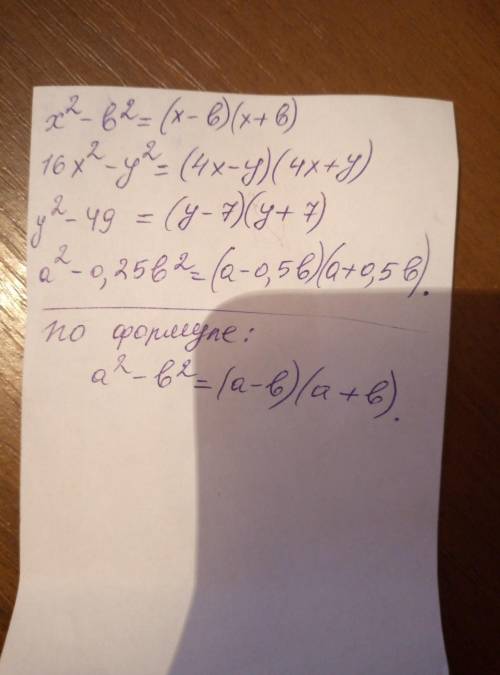 x² - в² = (x - в)(x + в)
16x² - y² = (4x - y)(4x + y)
y² - 49 = (y - 7)(y + 7)
a² - 0,25в² = (a - 0,5в)(a + 0,5в).
по формуле:
a² - в² = (a - в)(a + в).